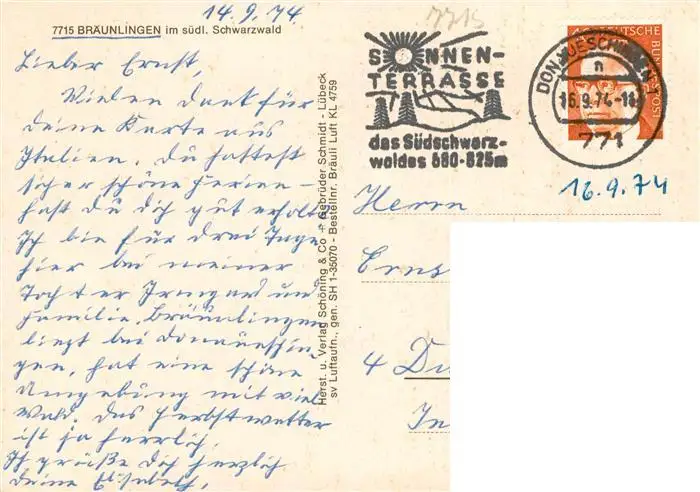 14.9.74
7715 BRÄUNLINGEN im südl. Schwarzwald
Lieber Ernst,
Vielen Dank für
deine Karte aus
Italien. Du hattest
sicher schöne Ferien -
hast du dich gut erholt
Ich bin für drei Tage
hier bei meiner
Tochter Irmgard und
Familie. Bräunlingen
liegt bei Donaueschin-
gen, hat eine schöne
Umgebung mit viel
Wald. Das Herbstwetter
ist ja herrlich.
Ich grüße dich herzlich
deine Elisabeth.
Herst. u. Verlag Schöning & Co + Gebrüder Schmidt - Lübeck
sv Luftaufn., gen. SH 1-35070 - Bestellnr. Bräuli Luft KL 4759
7715
SONNEN-
TERRASSE
des Südschwarz-
waldes 680-825m
DONAUESCHINGEN 1
n
16.9.74-18
771
DEUTSCHE BUNDESPOST
16.9.74
Herrn
Erns
4 Dü
In